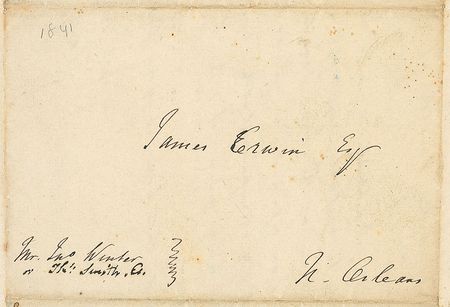 1841
James Erwin Esq
Mr. Jno Winter
or Thos. Smith, Ed.
N. Orleans